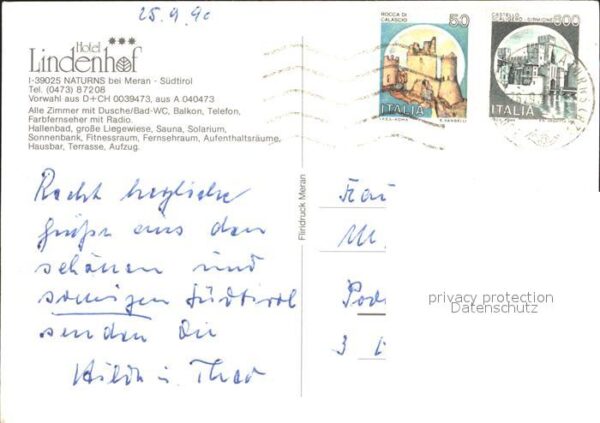 25.9.90
ROCCA DI CALASCIO
50
ITALIA
I.P.Z.S.-ROMA E. VANGELLI
CASTELLO SCALIGERO - SIRMIONE
600
ITALIA
Hotel ***
Lindenhof
I-39025 NATURNS bei Meran - Südtirol
Tel. (0473) 87208
Vorwahl aus D+CH 0039473, aus A 040473
Alle Zimmer mit Dusche/Bad-WC, Balkon, Telefon,
Farbfernseher mit Radio.
Hallenbad, große Liegewiese, Sauna, Solarium,
Sonnenbank, Fitnessraum, Fernsehraum, Aufenthaltsräume,
Hausbar, Terrasse, Aufzug.
Recht herzliche
Grüße aus dem
schönen und
sonnigen Südtirol
senden Dir
Hilde u. Theo
Flridruck Meran
Frau
M
Pod
3
privacy protection
Datenschutz